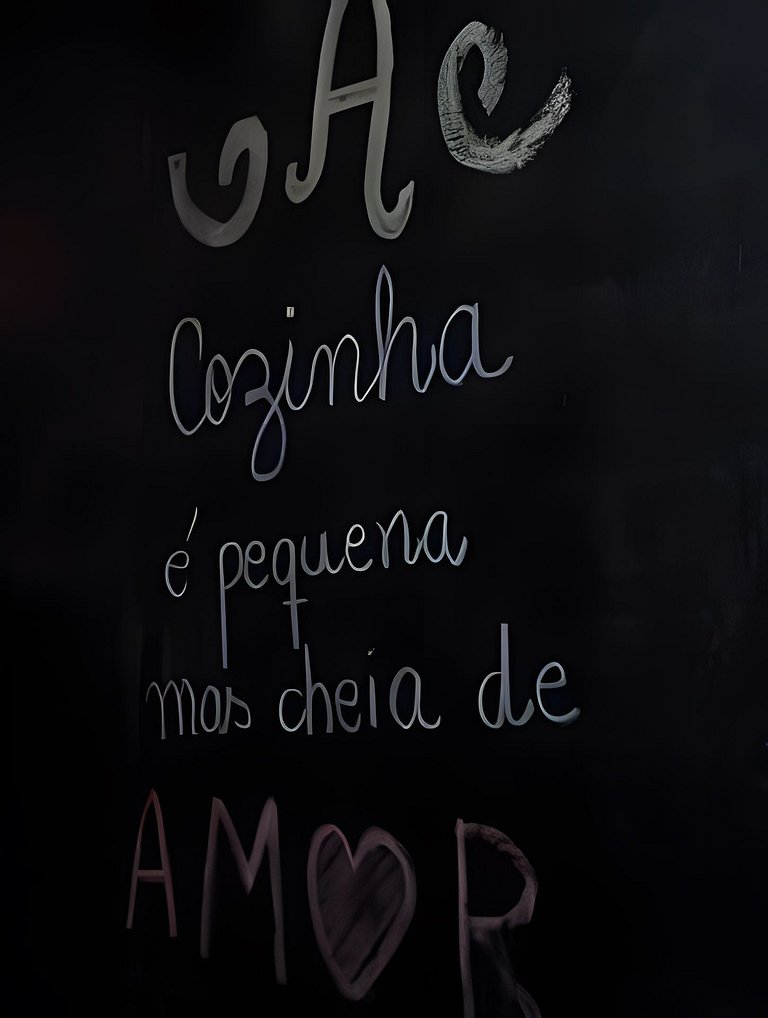 A
Cozinha
é pequena
mas cheia de
AM♥R